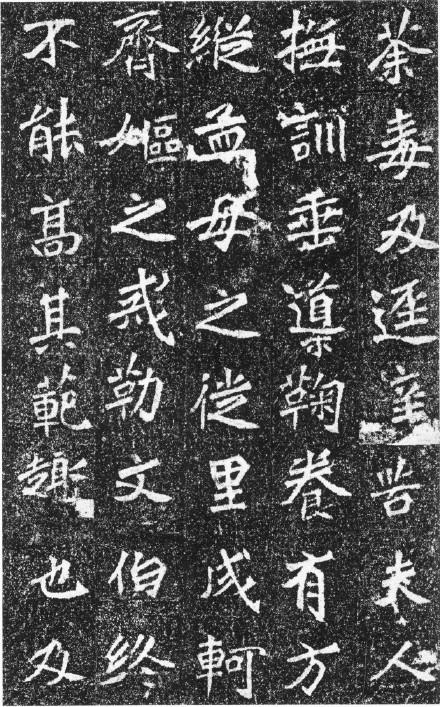 荼毒及夫人
撫訓垂導鞠養有方
縱孟母之徙里成軻
齊嫗之戒勒文伯終
不能高其範趣也及